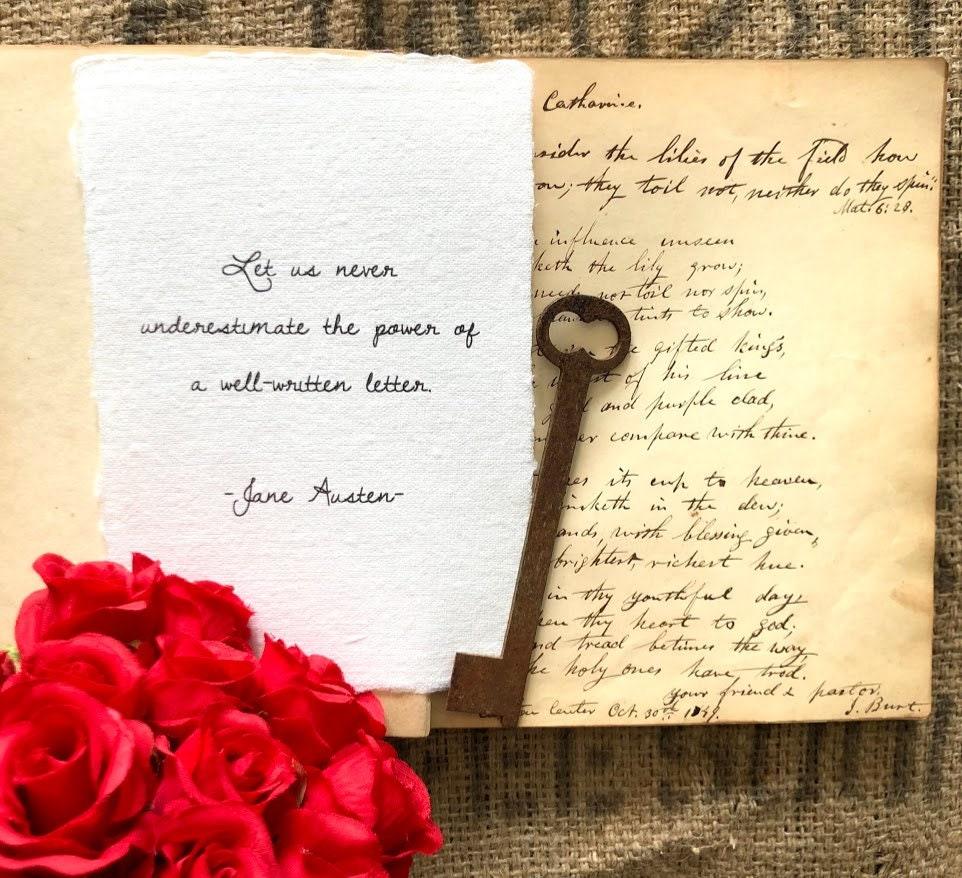 Let us never
underestimate the power of
a well-written letter.
-Jane Austen-
Catharine.
the lilies of the field how
they toil not, neither do they spin."
Mat. 6: 28.
influence unseen
the lily grow;
not toil nor spin,
tints to show.
the gifted kings,
of his line
and purple clad,
compare with thine.
its cup to heaven,
in the dew;
with blessing given,
brightest, richest hue.
in thy youthful days
thy heart to god;
tread betimes the way
holy ones have trod.
your friend & pastor.
J. Burt.
Center Oct. 30